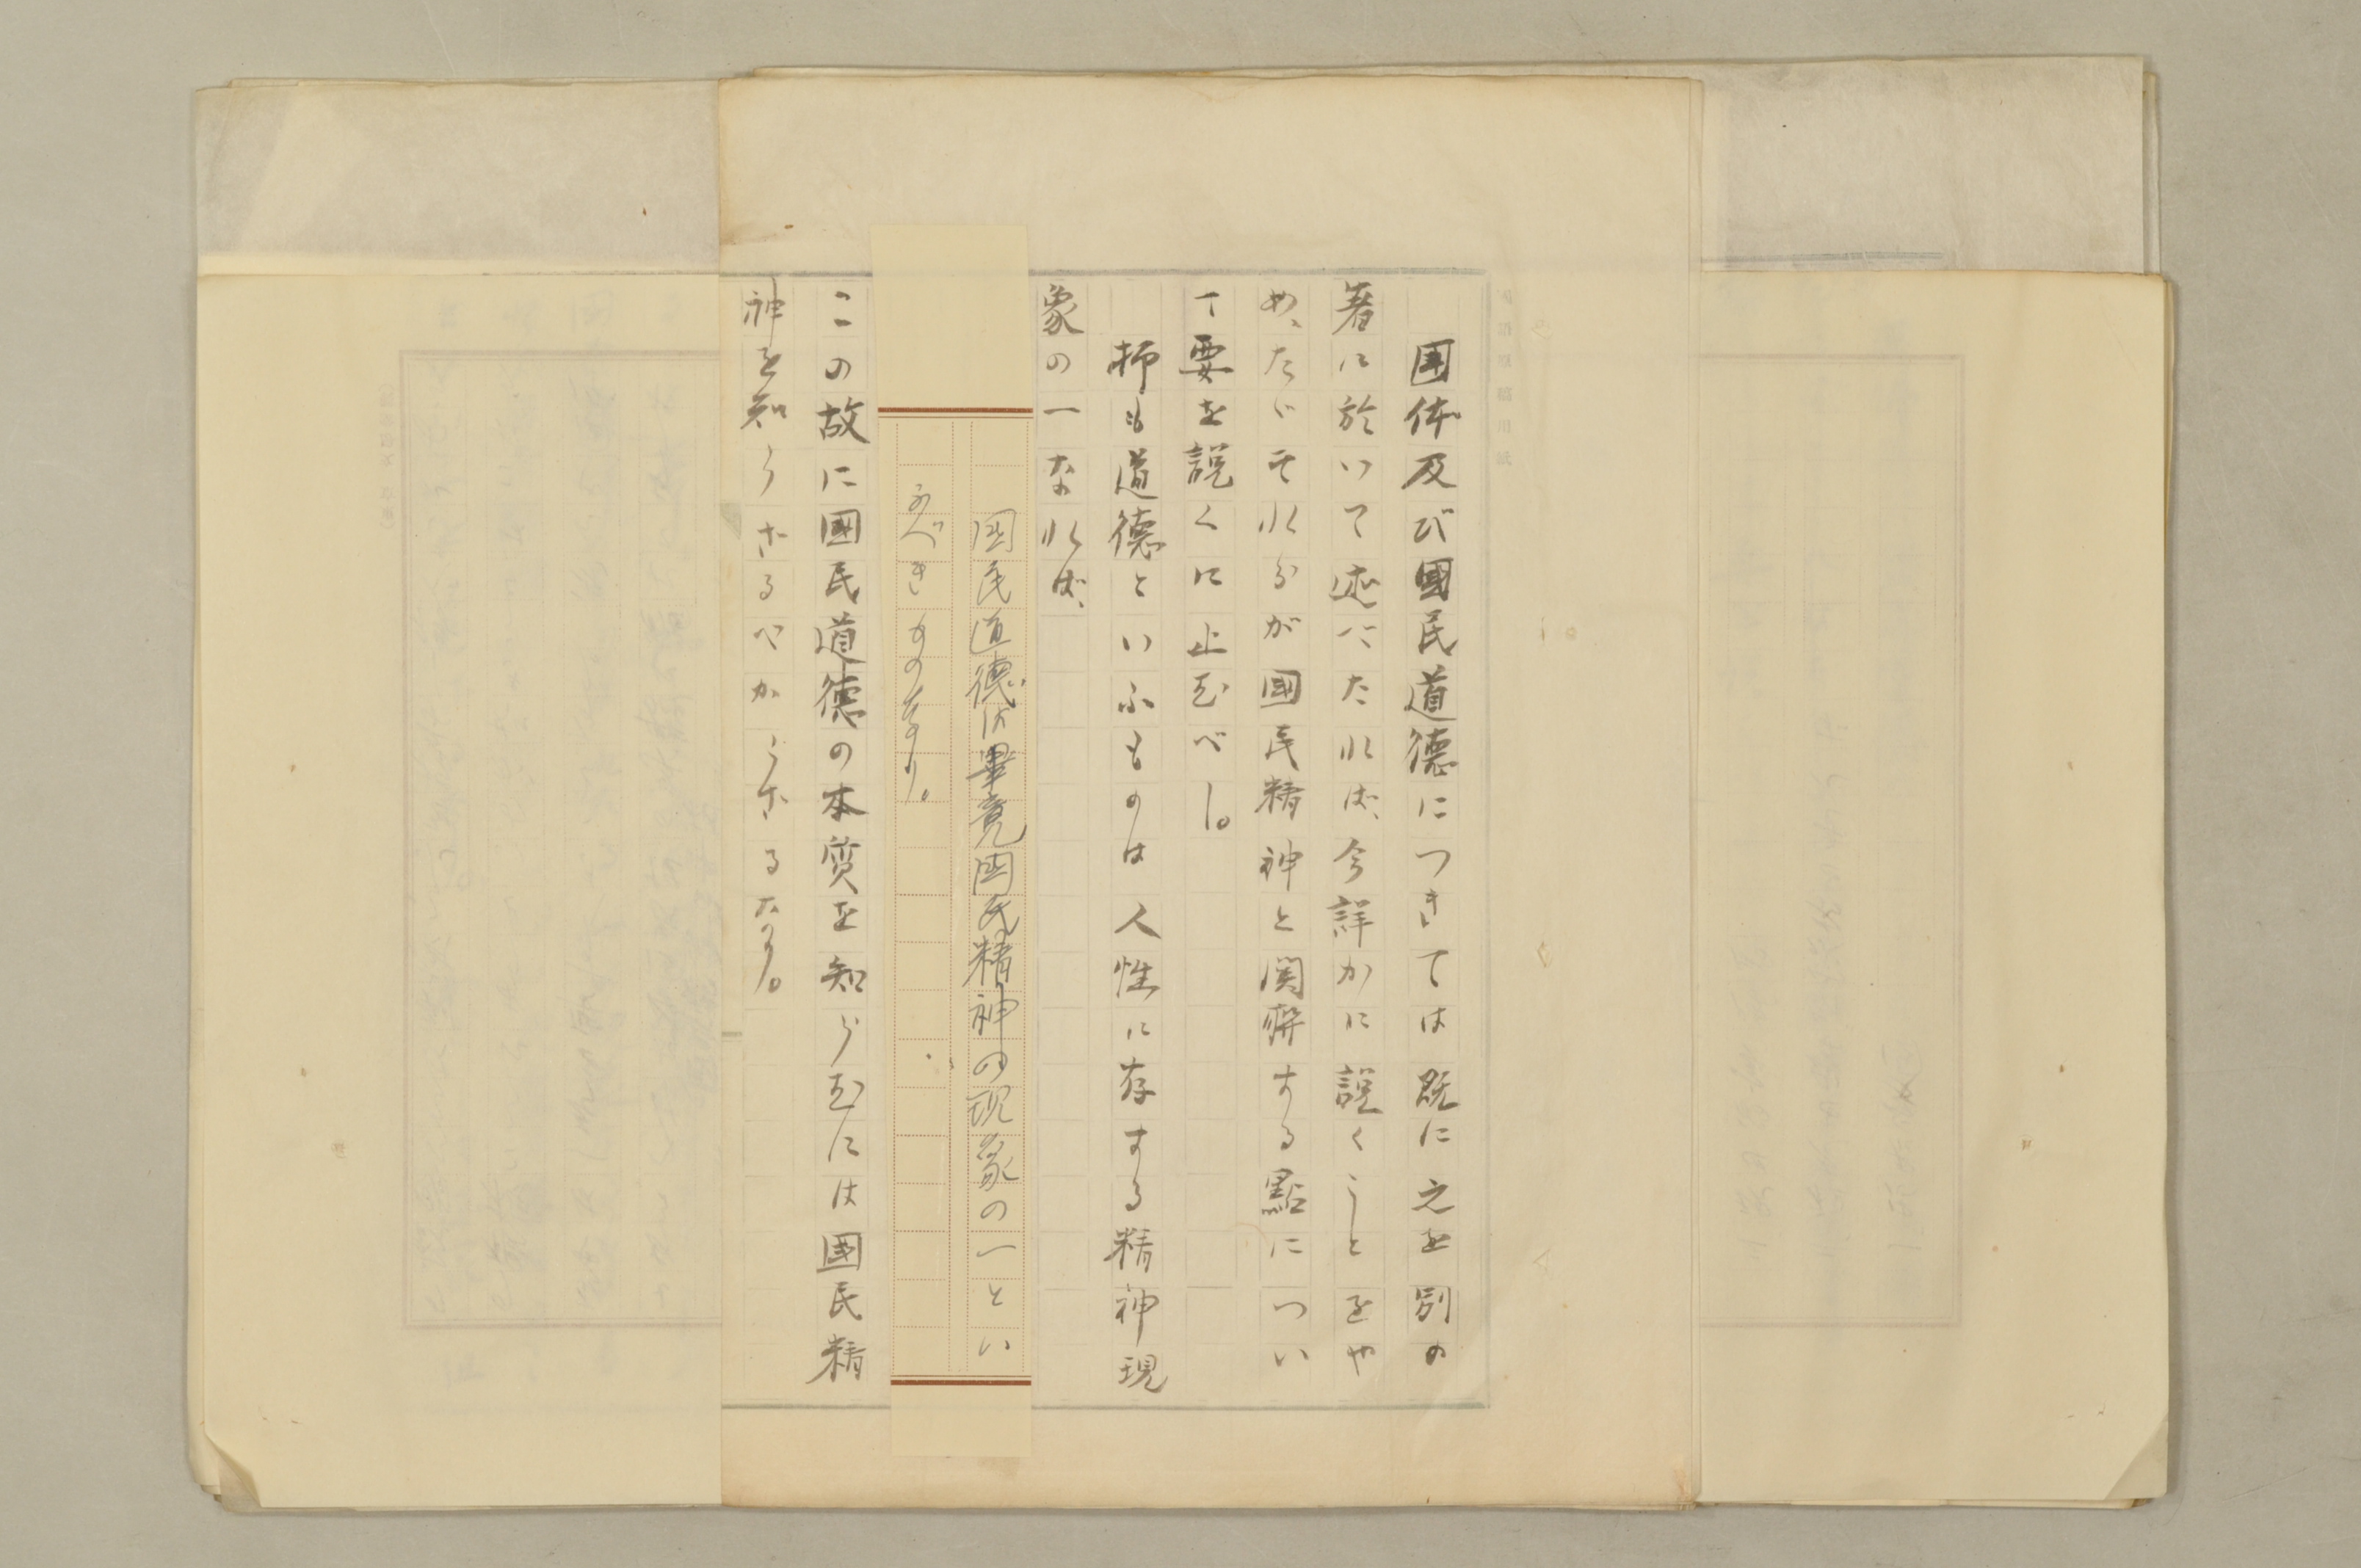 国体及び國民道德につきては既に之を別の
著に於いて述べたれば、今詳かに説くことをや
め、たゞそれらが國民精神と関聯する點につい
て要を説くに止むべし。
抑も道德といふものは人性に存する精神現
象の一なれば、
國民道德は畢竟国民精神の現象の一とい
ふべきものなり。
この故に國民道德の本質を知らむには國民精
神を知らざるべからざるなり。